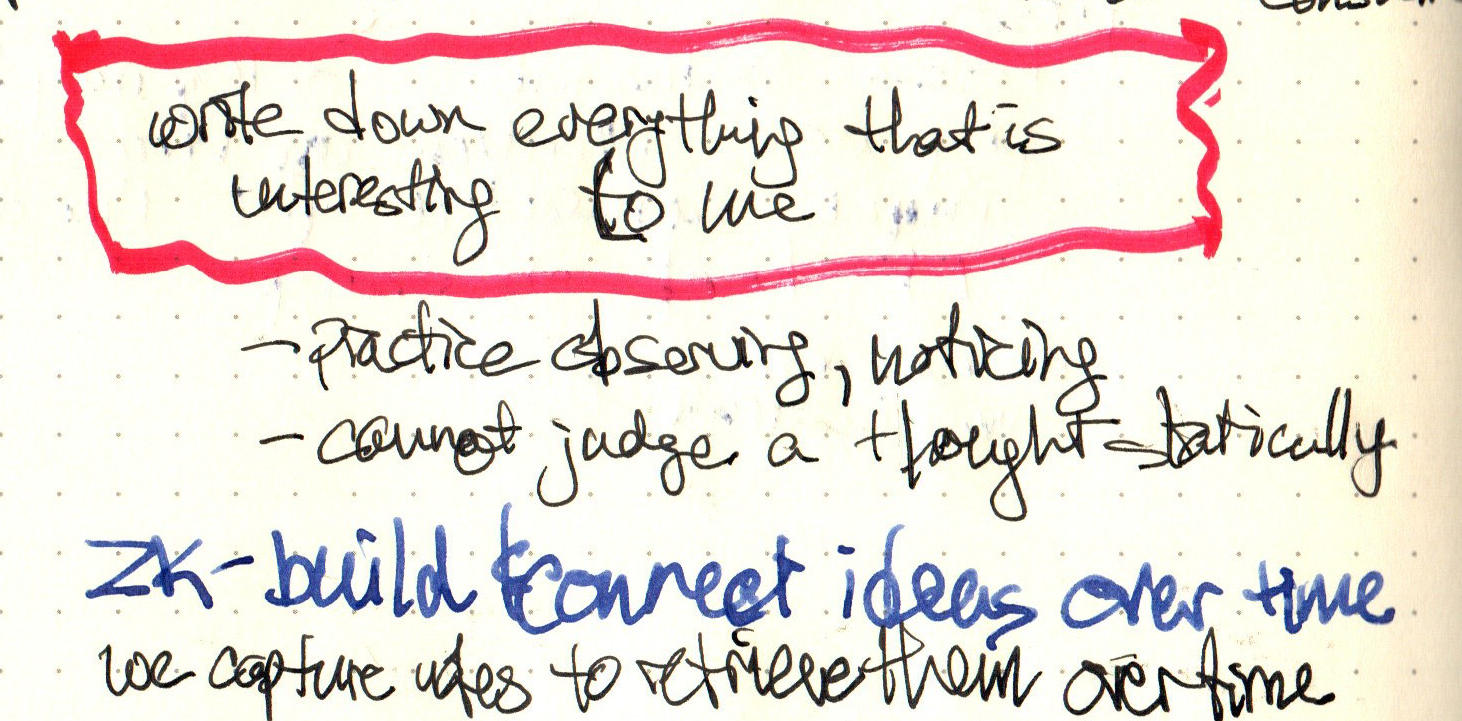 write down everything that is
interesting to me
- practice observing, noticing
- cannot judge a thought statically
ZK - build & connect ideas over time
we capture to retrieve them over time